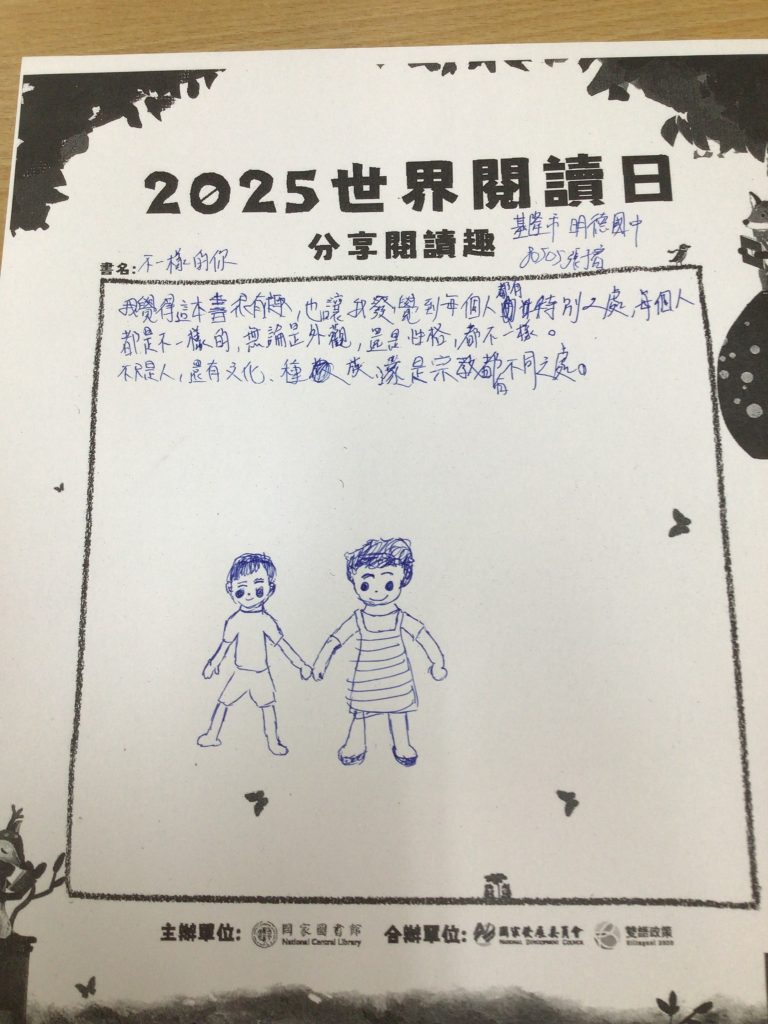 2025世界閱讀日
分享閱讀趣
基隆市 明德國中
書名: 不一樣的你
我覺得這本書很有趣,也讓我發覺到每個人都有特別之處,每個人
都是不一樣的,無論是外觀,還是性格,都不一樣。
不只是人,還有文化、種族,還是宗教都有不同之處。
主辦單位: 國家圖書館 National Central Library 合辦單位: 國家發展委員會 NATIONAL DEVELOPMENT COUNCIL 雙語政策 Bilingual 2030